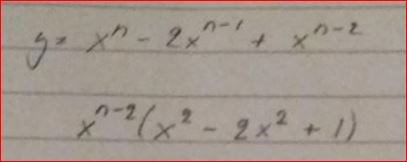 y = xⁿ - 2xⁿ⁻¹ + xⁿ⁻²
xⁿ⁻²(x² - 2x² + 1)